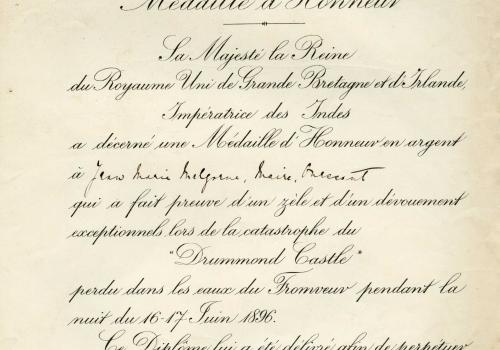 Médaille d'Honneur
Sa Majesté la Reine
du Royaume Uni de Grande Bretagne et d'Irlande,
Impératrice des Indes
a décerné une Médaille d'Honneur en argent
à Jean Marie Malgorne, Maire, Ouessant
qui a fait preuve d'un zèle et d'un dévouement
exceptionnels lors de la catastrophe du
"Drummond Castle"
perdu dans les eaux du Fromveur pendant la
nuit du 16-17 Juin 1896.
Ce Diplôme lui a été délivré afin de perpétuer